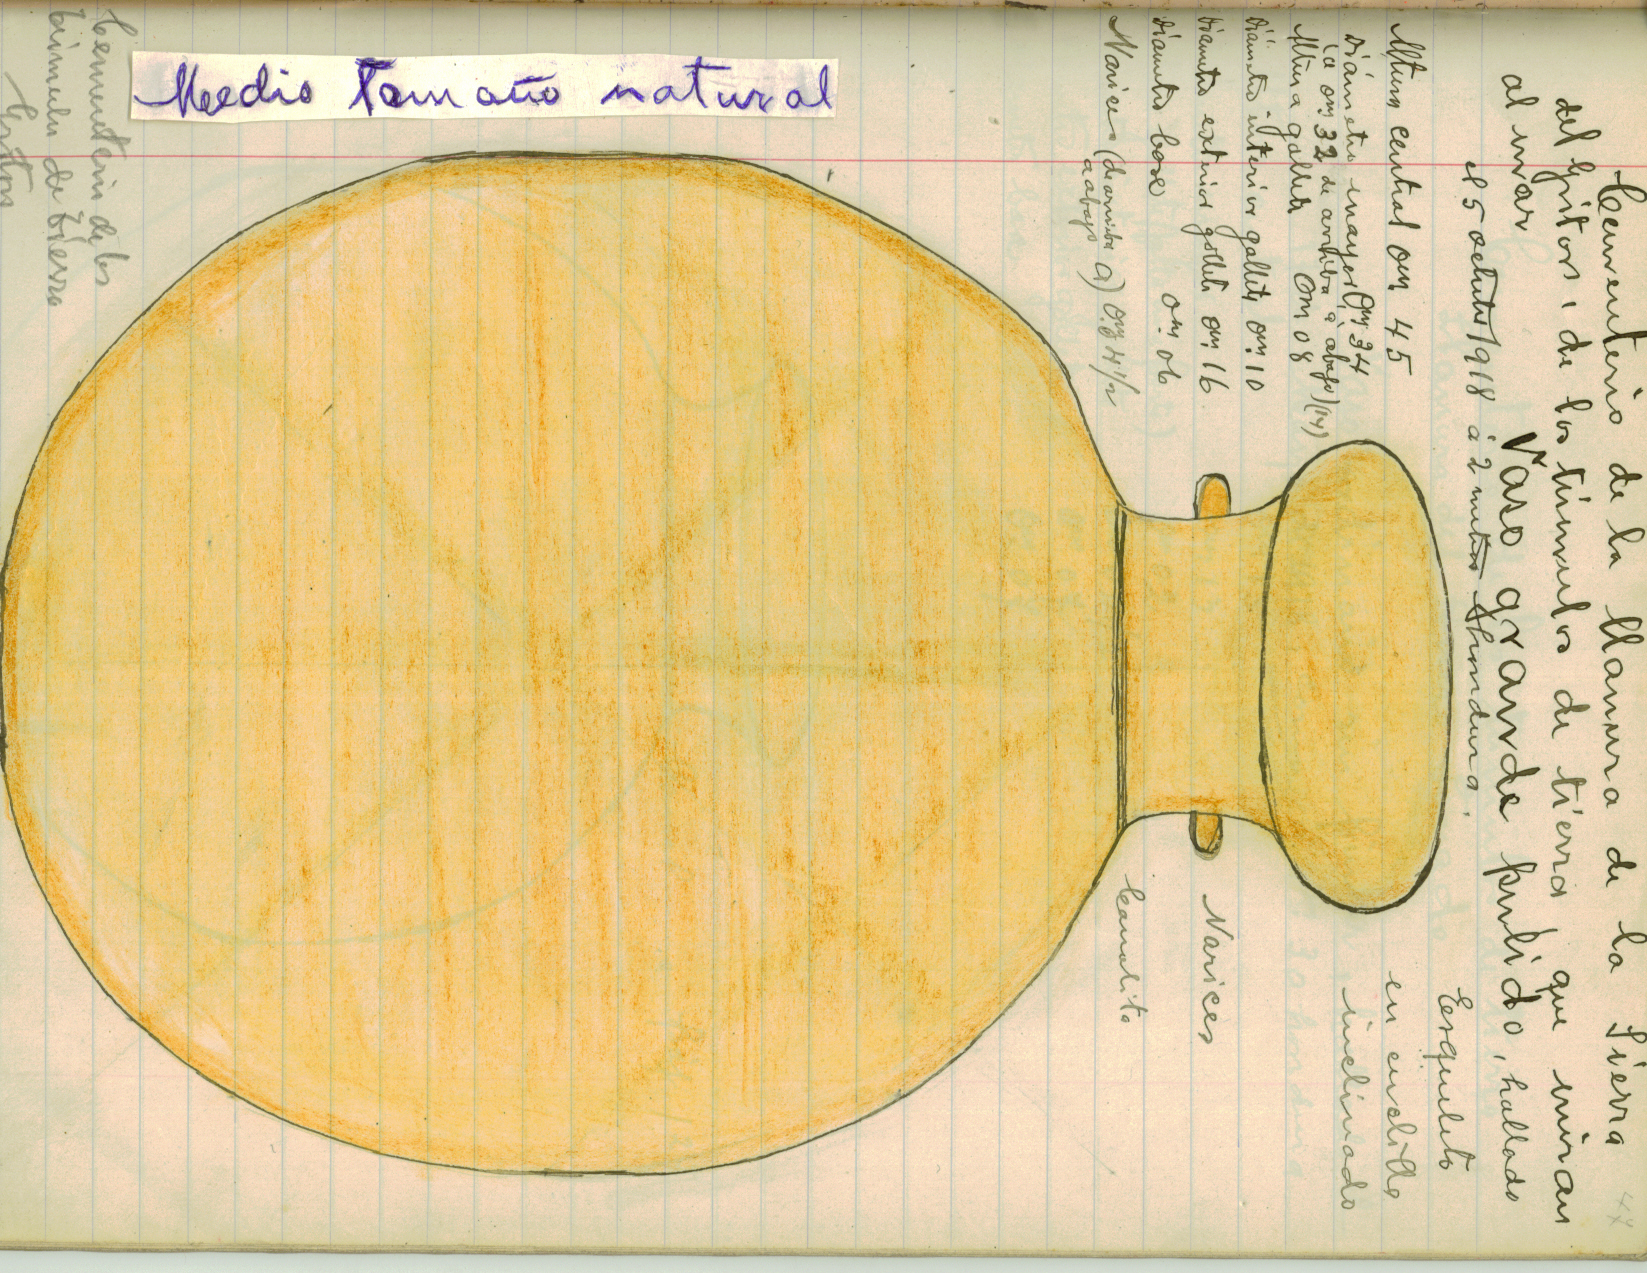 Cementerio de la llanura de la Sierra
del Gritón, de los túmulos de tierra que miran
al mar
Vaso grande pulido, hallado
el 5 octubre 1918 á 2 metros
Esqueleto
en cuclillas
inclinado
Altura central 0m 45
Diámetro mayor 0m 34
(a 0m 32 de arriba á abajo) (14)
Altura gollete 0m 08
Diámetro interior gollete 0m 10
Diámetro exterior gollete 0m 16
Diámetro base 0m. 06
Narices (de arriba a) 0m 4 1/2
a abajo
Narices
Canalito
Medio Tamaño natural
Cementerio de los
túmulos de tierra
Gritón